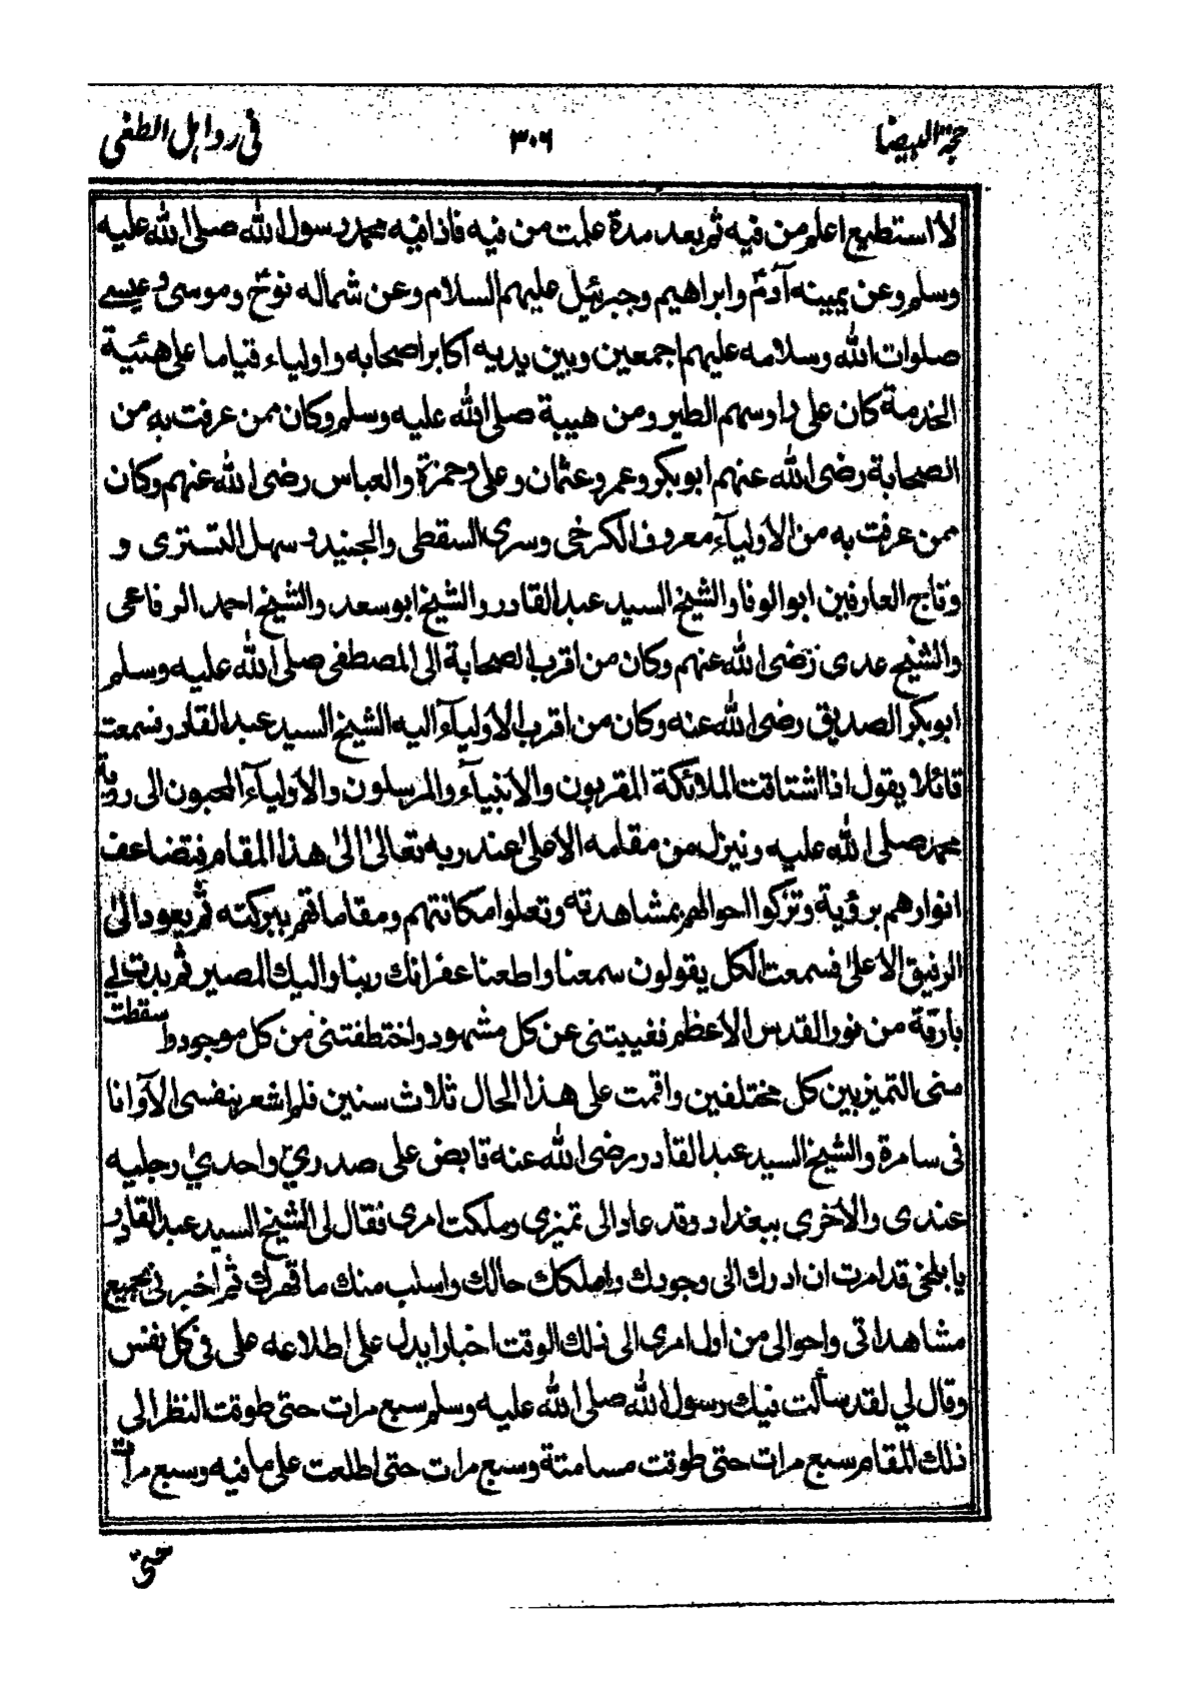 حجة البيضا ٣٠٦ فى رد اهل الطغى
لا استطيع اعلم من فيه ثم بعد مدة علمت من فيه فاذا فيه محمد رسول الله صلى الله عليه
وسلم وعن يمينه آدم وابراهيم وجبرئيل عليهم السلام وعن شماله نوح وموسى وعيسى
صلوات الله وسلامه عليهم اجمعين وبين يديه اكابر اصحابه واولياء قياما على هئية
الخدمة كان على راوسهم الطير ومن هيبة صلى الله عليه وسلم وكان ممن عرفت به من
الصحابة رضى الله عنهم ابوبكر وعمر وعثمان وعلى وحمزة والعباس رضى الله عنهم وكان
ممن عرفت به من الأولياء معروف الكرخى وسرى السقطى والجنيد وسهل التسترى و
وتاج العارفين ابوالوفا والشيخ السيد عبد القادر والشيخ ابوسعد والشيخ احمد الرفاعى
والشيخ عدى رضى الله عنهم وكان من اقرب الصحابة الى المصطفى صلى الله عليه وسلم
ابوبكر الصديق رضى الله عنه وكان من اقرب الأولياء اليه الشيخ السيد عبد القادر فسمعت
قائلا يقول اذا اشتاقت الملائكة المقربون والأنبياء والمرسلون والأولياء المحبون الى رؤية
محمد صلى الله عليه وينزل من مقامه الأعلى عند ربه تعالى الى هذا المقام فيتضاعف
انوارهم برؤية وتزكوا احوالهم بمشاهدته وتعلوا مكانتهم ومقاماتهم ببركته ثم يعود الى
الرفيق الأعلى فسمعت الكل يقولون سمعنا واطعنا غفرانك ربنا واليك المصير ثم بدت لي
بارقة من نور القدس الأعظم فغيبتنى عن كل مشهود واختطفتنى من كل موجود وسقطت
منى التميز بين كل مختلفين واقمت على هذا الحال ثلاث سنين فلم اشعر بنفسى الا وانا
فى سامرة والشيخ السيد عبد القادر رضى الله عنه قابض على صدري واحدي رجليه
عندى والأخرى ببغداد وقد عاد الى تميزى وملكت امرى فقال لى الشيخ السيد عبد القادر
يا بلخى قد امرت ان ادرك الى وجودك واملكك حالك واسلب منك ما قهرك ثم اخبرنى بجميع
مشاهداتى واحوالى من اول امرى الى ذلك الوقت اخبارا يدل على اطلاعه على فى كل نفس
وقال لي لقد سألت فيك رسول الله صلى الله عليه وسلم سبع مرات حتى طوقت النظر الى
ذلك المقام سبع مرات حتى طوقت مسامتة وسبع مرات حتى اطلعت على ما فيه وسبع مرات
حتى